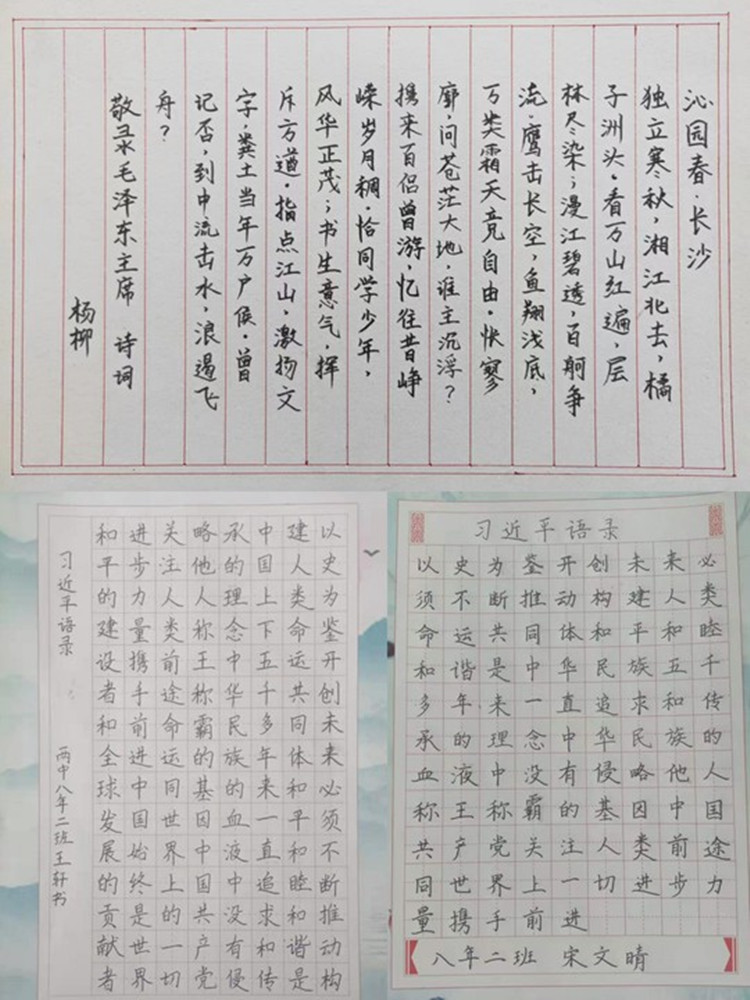 沁园春·长沙
独立寒秋,湘江北去,橘
子洲头。看万山红遍,层
林尽染;漫江碧透,百舸争
流。鹰击长空,鱼翔浅底,
万类霜天竞自由。怅寥
廓,问苍茫大地,谁主沉浮?
携来百侣曾游,忆往昔峥
嵘岁月稠。恰同学少年,
风华正茂;书生意气,挥
斥方遒。指点江山,激扬文
字,粪土当年万户侯。曾
记否,到中流击水,浪遏飞
舟?
敬录毛泽东主席 诗词
杨柳
以史为鉴开创未来必须不断推动构
建人类命运共同体和平和睦和谐是
中国上下五千多年来一直追求和传
承的理念中华民族的血液中没有侵
略他人称王称霸的基因中国共产党
关注人类前途命运同世界上的一切
进步力量携手前进中国始终是世界
和平的建设者和全球发展的贡献者
习近平语录 中八年二班王轩书
习近平语录
以史为鉴开创未来必
须不断推动构建人类
命运共同体和平和睦
和谐是中华民族五千
多年来一直追求和传
承的理念中华民族的
血液中没有侵略他人
称王称霸的基因中国
共产党关注人类前途
同世界上一切进步力
量携手前进
八年二班 宋文晴